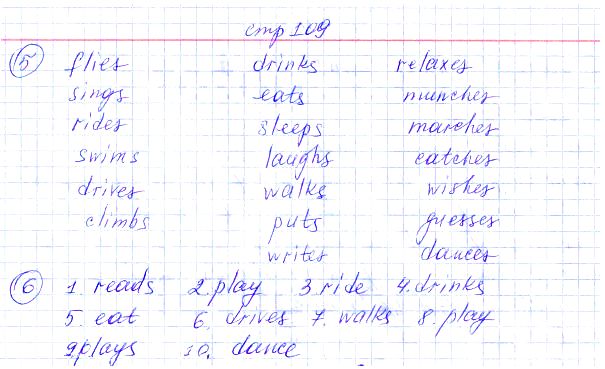 стр 109
5 flies drinks relaxes
sings eats munches
rides sleeps marches
swims laughs catches
drives walks wishes
climbs puts guesses
writes dances
6 1. reads 2. play 3. ride 4. drinks
5. eat 6. drives 7. walks 8. play
9. plays 10. dance